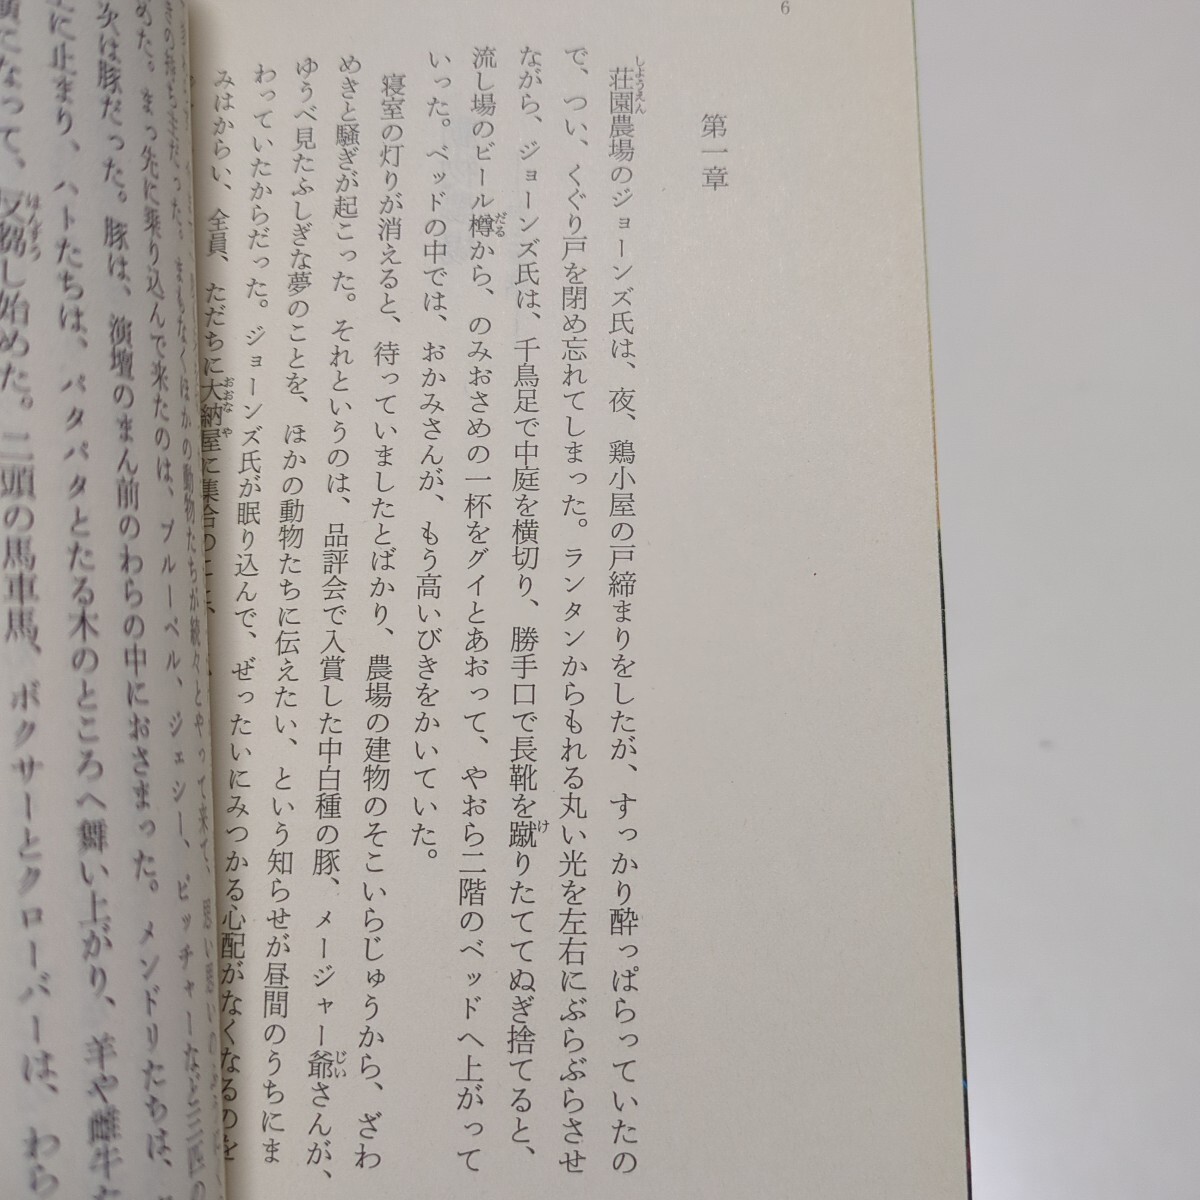 6
第一章
荘園農場のジョーンズ氏は、夜、鶏小屋の戸締まりをしたが、すっかり酔っぱらっていたの
しょうえん
で、つい、くぐり戸を閉め忘れてしまった。ランタンからもれる丸い光を左右にぶらぶらさせ
ながら、ジョーンズ氏は、千鳥足で中庭を横切り、勝手口で長靴を蹴りたててぬぎ捨てると、
け
流し場のビール樽から、のみおさめの一杯をグイとあおって、やおら二階のベッドへ上がって
だる
いった。ベッドの中では、おかみさんが、もう高いびきをかいていた。
寝室の灯りが消えると、待っていましたとばかり、農場の建物のそこいらじゅうから、ざわ
めきと騒ぎが起こった。それというのは、品評会で入賞した中白種の豚、メージャー爺さんが、
じい
ゆうべ見たふしぎな夢のことを、ほかの動物たちに伝えたい、という知らせが昼間のうちにま
わっていたからだった。ジョーンズ氏が眠り込んで、ぜったいにみつかる心配がなくなるのを
みはからい、全員、ただちに大納屋に集合のこと、
おおなや
ほかの動物たちが続々とやって来て、思い思いの
めた。まっ先に乗り込んで来たのは、ブルーベル、ジェシー、ピッチャーなど三匹の
次は豚だった。豚は、演壇のまん前のわらの中におさまった。メンドリたちは、
に止まり、ハトたちは、パタパタとたる木のところへ舞い上がり、羊や雌牛
になって、反芻し始めた。二頭の馬車馬、ボクサーとクローバーは、わら
はんすう